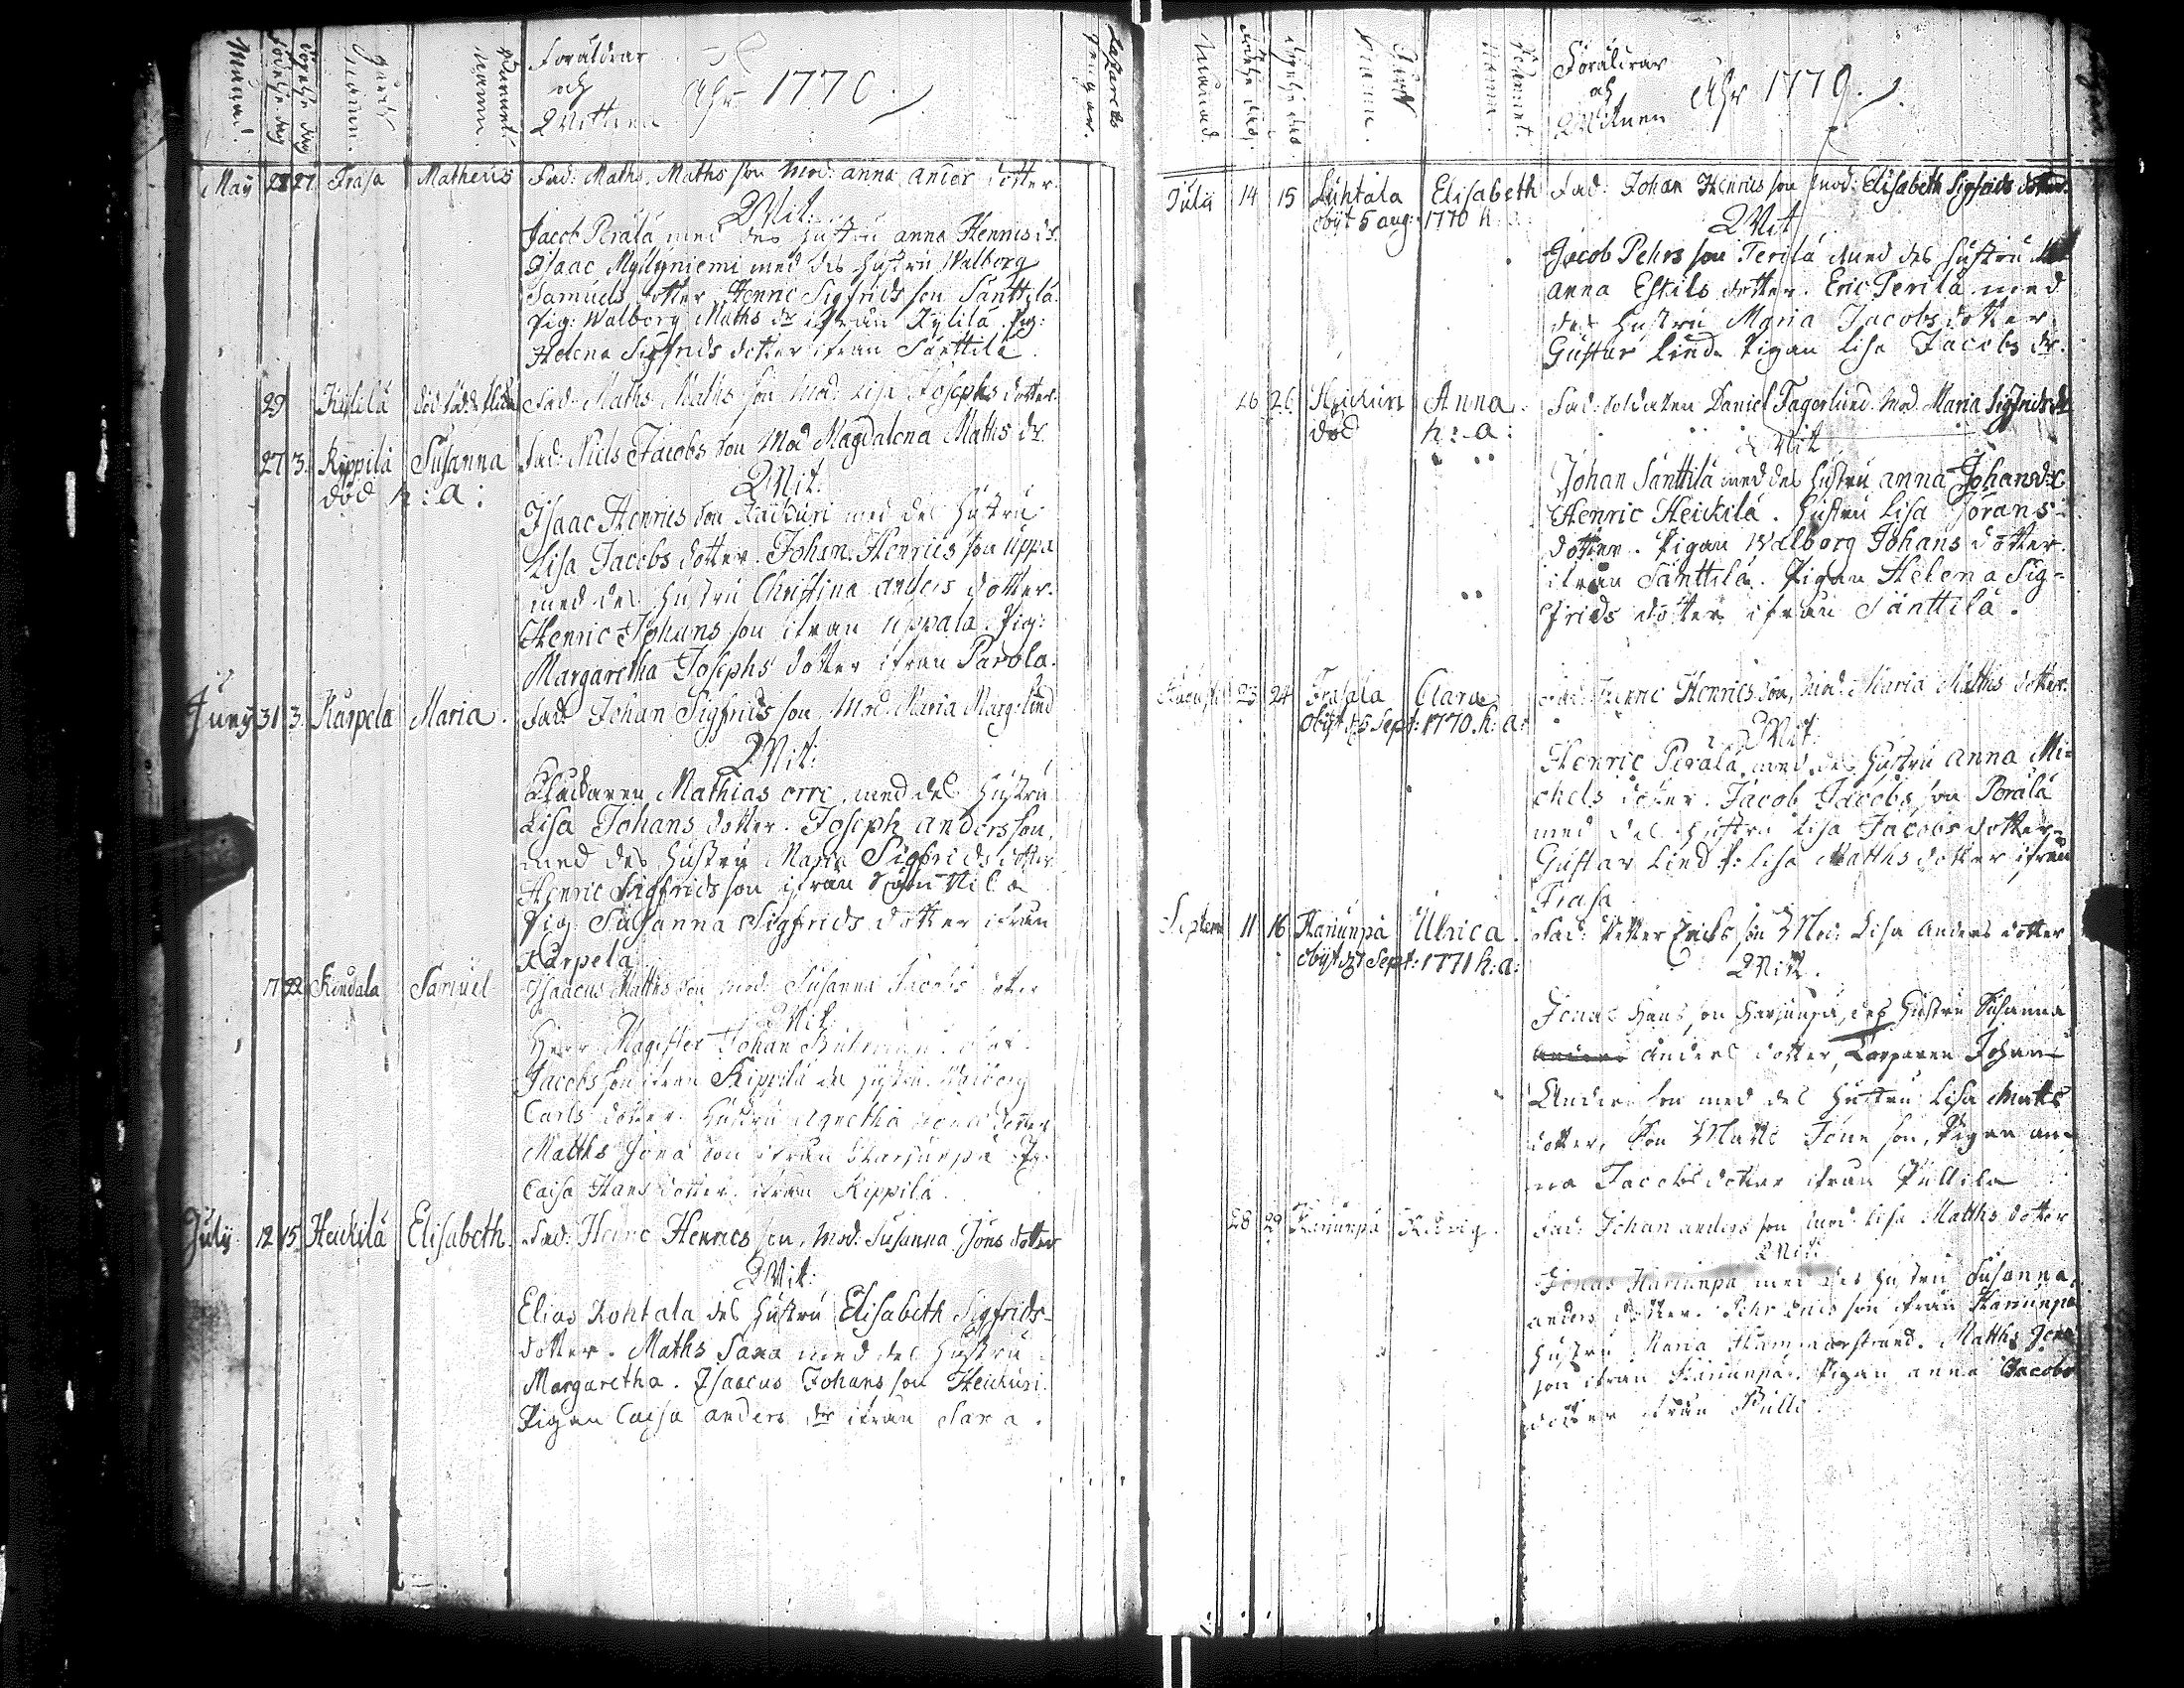 Månad.
Födelse dag
Döpelse dag
Gårds namn.
Barnens namn.
Föräldrar
och
Wittnen
Åhr 1770.
Lazarets pengar.
May 28 27 Frasa Matheus Fad: Maths Maths son Mod: anna anders dotter.
Wit:
Jacob Perälä med des hustru anna Henrics dr.
Isaac Myllyniemi med des hustru Walborg
Samuels dotter Henric Sigfrids son Santtila.
Pig: Walborg Maths dr ifrån Kylilä. Pig:
Helena Sigfrids dotter ifrån Santtila.
29 Kylilä död född Fad: Maths Maths son Mod: Lisa Josephs dotter.
27 3. Kippilä Susanna Fad: Nils Jacobs son Mod Magdalena Maths dr
död h: a:
Wit:
Isaac Henrics son med des hustru
Lisa Jacobs dotter. Johan Henrics son uppa
med des hustru Christina anders dotter.
Henric Johans son ifrån uppala. Pig:
Margaretha Josephs dotter ifrån Parola.
Juny 31 3. Karpela Maria. Fad: Johan Sigfrids son Mod: Maria Marg: lind
Wit:
Mathias orre med des hustru
Lisa Johans dotter. Joseph anders son,
med des hustru Maria Sigfrids dotter
Henric Sigfrids son ifrån
Pig: Susanna Sigfrids dotter ifrån
Karpela.
17 22 Kindala Samuel Isaacus Matths son mod: Susanna Jacobs dotter
Wit:
Herr Magister Johan
Jacobs son ifrån Kippilä des hustru Walborg
Carls dotter. hustru agnetha dotter
Matths Jona son ifrån Harjunpä Pig:
Caisa Hans dotter ifrån Kippilä.
July 12 15. Heickilä Elisabeth. Fad: Henric Henrics son, Mod: Susanna Jöns dotter
Wit:
Elias Rohtala des hustru Elisabeth Sigfrids-
dotter. Maths Saxa med des hustru
Margaretha. Isaacus Johans son Heickuri.
Pigan Caisa anders dr ifrån Saxa.
Månad.
Födelse dag.
Döpelse dag
Gårds namn.
Barnens namn.
Föräldrar
och
Witnen
Åhr 1770.
Julii 14 15 Luhtala Elisabeth Fad: Johan Henrics son mod: Elisabeth Sigfrids dotter.
obijt 5 aug: 1770 h:
Wit
Jacob Pehrs son Perilä med des hustru
anna Eskils dotter. Eric Perilä med
des hustru Maria Jacobs dotter.
Gustav Lind. Pigan Lisa Jacobs dr.
26 26 Heickuri Anna. Fad: Soldaten Daniel Fagerlund. Mod. Maria Sigfrids dr
död h: a:
Wit
Johan Santtila med des hustru anna Johans dr
Henric Heickilä. hustru Lisa Jörans
dotter. Pigan Walborg Johans dotter.
ifrån Santtilä. Pigan Helena Sig-
frids dotter ifrån Santtilä.
Augusti 23 24 Frasala Clara Fad: Henric Henrics son, Mod: Maria Maths dotter.
obijt 15 Sept: 1770. h: a:
Wit:
Henric Perälä med des hustru anna Mi-
chels dotter. Jacob Jacobs son Perälä
med des hustru Lisa Jacobs dotter.
Gustav Lind P: Lisa Matths dotter ifrån
Frasa
Septem 11 16 Harjunpä Ulrica. Fad: Petter Erics son Mod: Lisa anders dotter
obijt Sept: 1771 h: a:
Witt.
Jonas Hans son Harjunpä, des hustru Susanna
Anders dotter, Torparen Johan
Anders son med des hustru Lisa Matts
dotter, Matts Jöns son, Pigan an-
na Jacobs dotter ifrån Pullila
28 29 Harjunpä Fad: Johan anders son mod: Lisa Matths dotter
Wit:
Jonas Harjunpä med des hustru Susanna
anders dotter. Pehr Erics son ifrån Harjunpä
hustru Maria Hammarstrand. Matths Jona
son ifrån Harjunpä. Pigan anna Jacobs
dotter ifrån Pulli